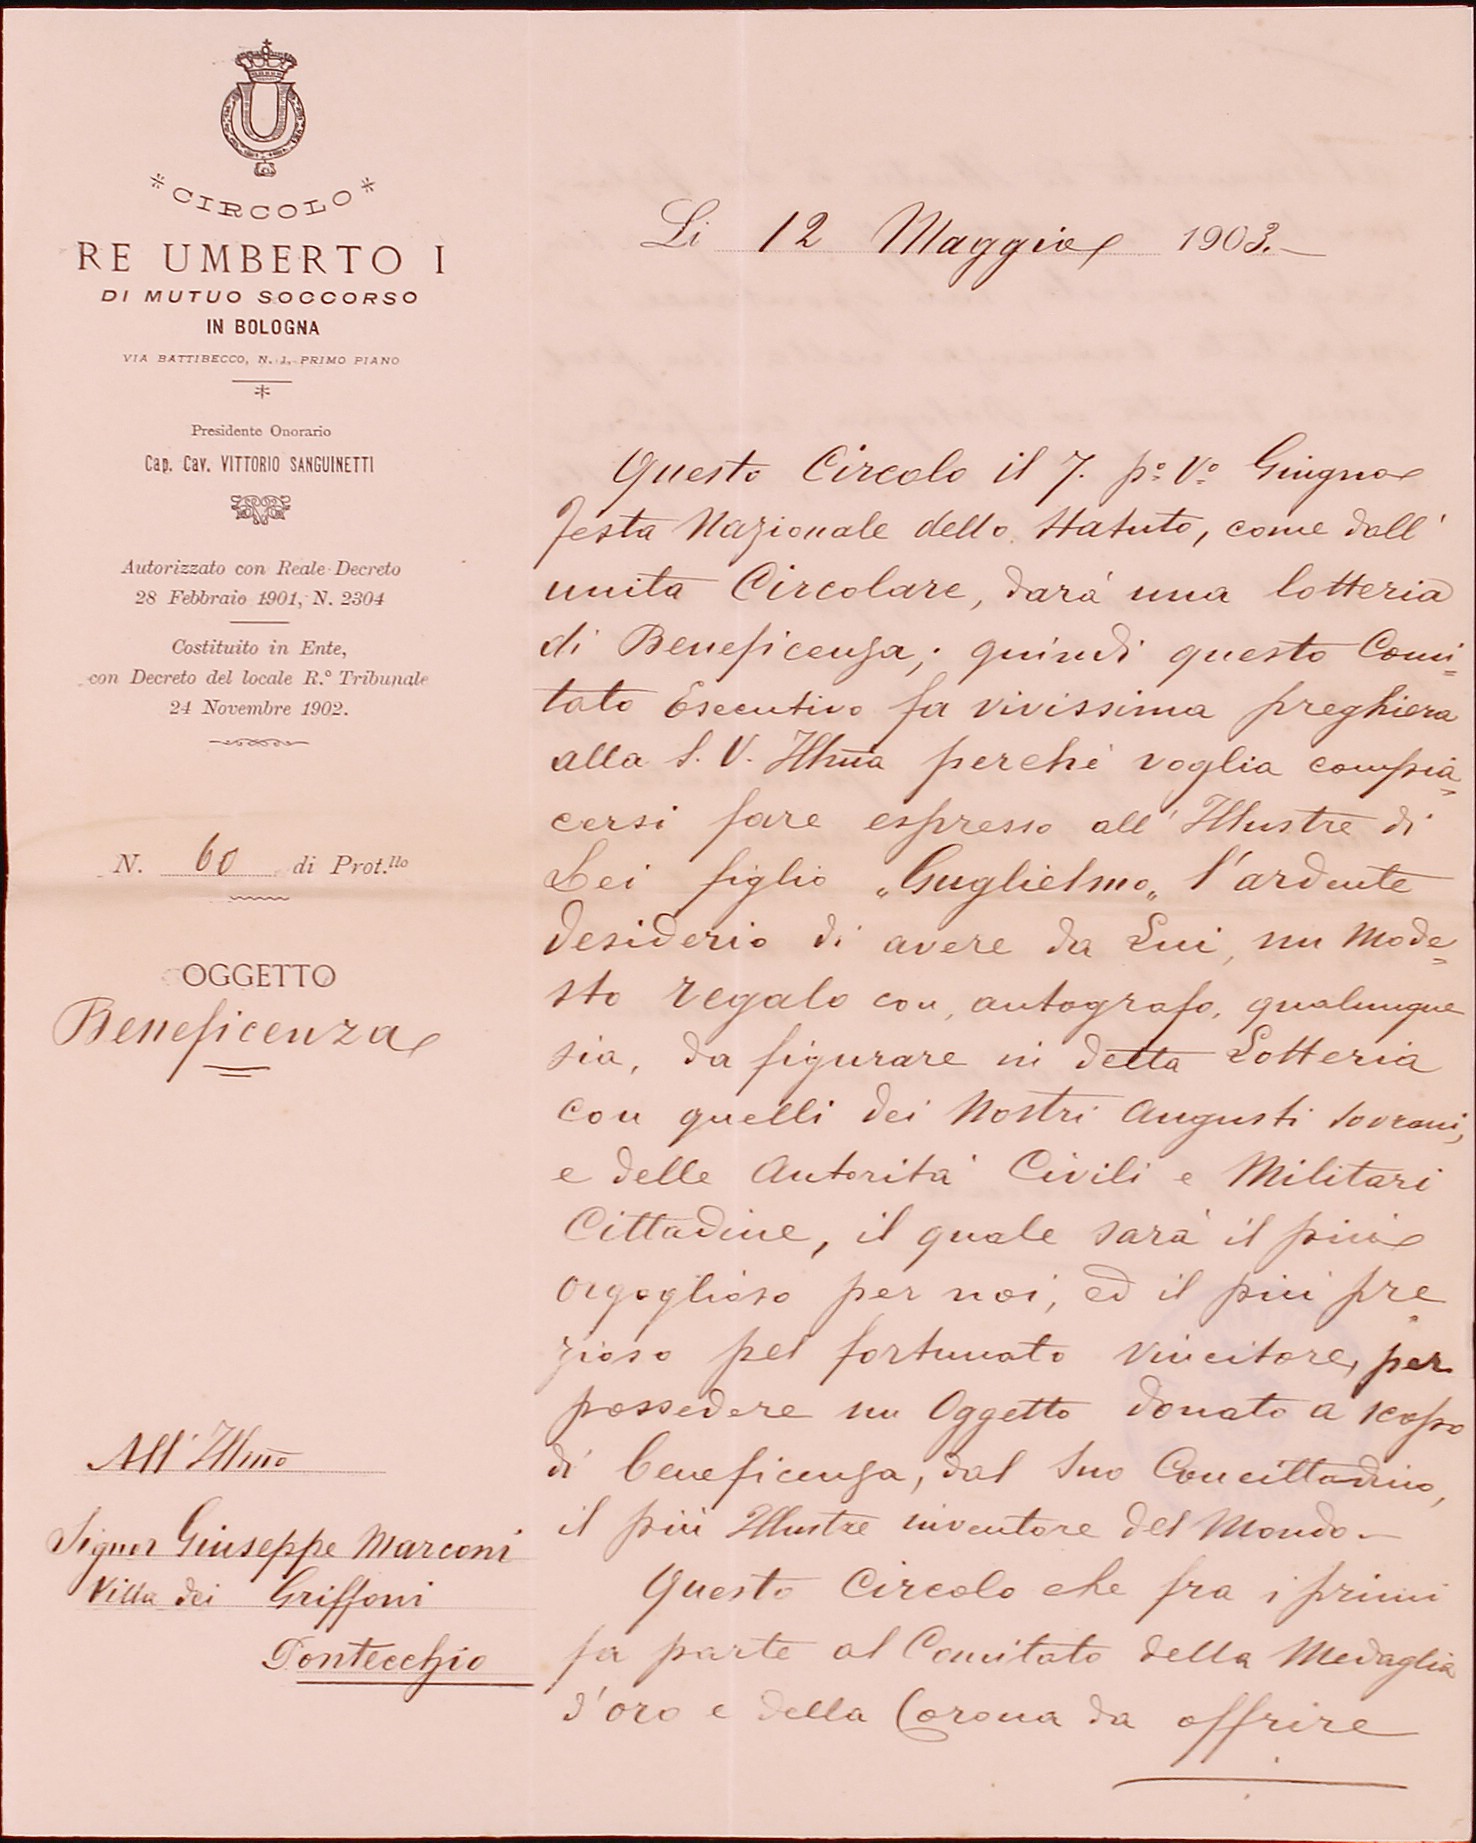 * CIRCOLO *
RE UMBERTO I
DI MUTUO SOCCORSO
IN BOLOGNA
VIA BATTIBECCO, N. 1, PRIMO PIANO
Presidente Onorario
Cap. Cav. VITTORIO SANGUINETTI
Autorizzato con Reale Decreto
28 Febbraio 1901, N. 2304
Costituito in Ente,
con Decreto del locale R.º Tribunale
24 Novembre 1902.
N. 60 di Prot.llo
OGGETTO
Beneficenza
All' Illmo
Signor Giuseppe Marconi
Villa dei Griffoni
Pontecchio
Li 12 Maggio 1903.
Questo Circolo il 7. pº. Vº. Giugno
festa Nazionale dello Statuto, come dall'
unita Circolare, darà una lotteria
di Beneficenza; quindi questo Comi=
tato Esecutivo fa vivissima preghiera
alla S. V. Illma perchè voglia compia=
cersi fare espresso all' Illustre di
Lei figlio „Guglielmo„ l'ardente
desiderio di avere da Lui, un Mode=
sto regalo con, autografo, qualunque
sia, da figurare in detta Lotteria
con quelli dei Nostri Augusti Sovrani,
e delle Autorità Civili e Militari
Cittadine, il quale sarà il più
orgoglioso per noi, ed il più pre=
zioso pel fortunato vincitore, per
possedere un Oggetto donato a scopo
di beneficenza, dal Suo Concittadino,
il più Illustre inventore del Mondo.—
Questo Circolo che fra i primi
fa parte al Comitato della Medaglia
d'oro e della Corona da offrire